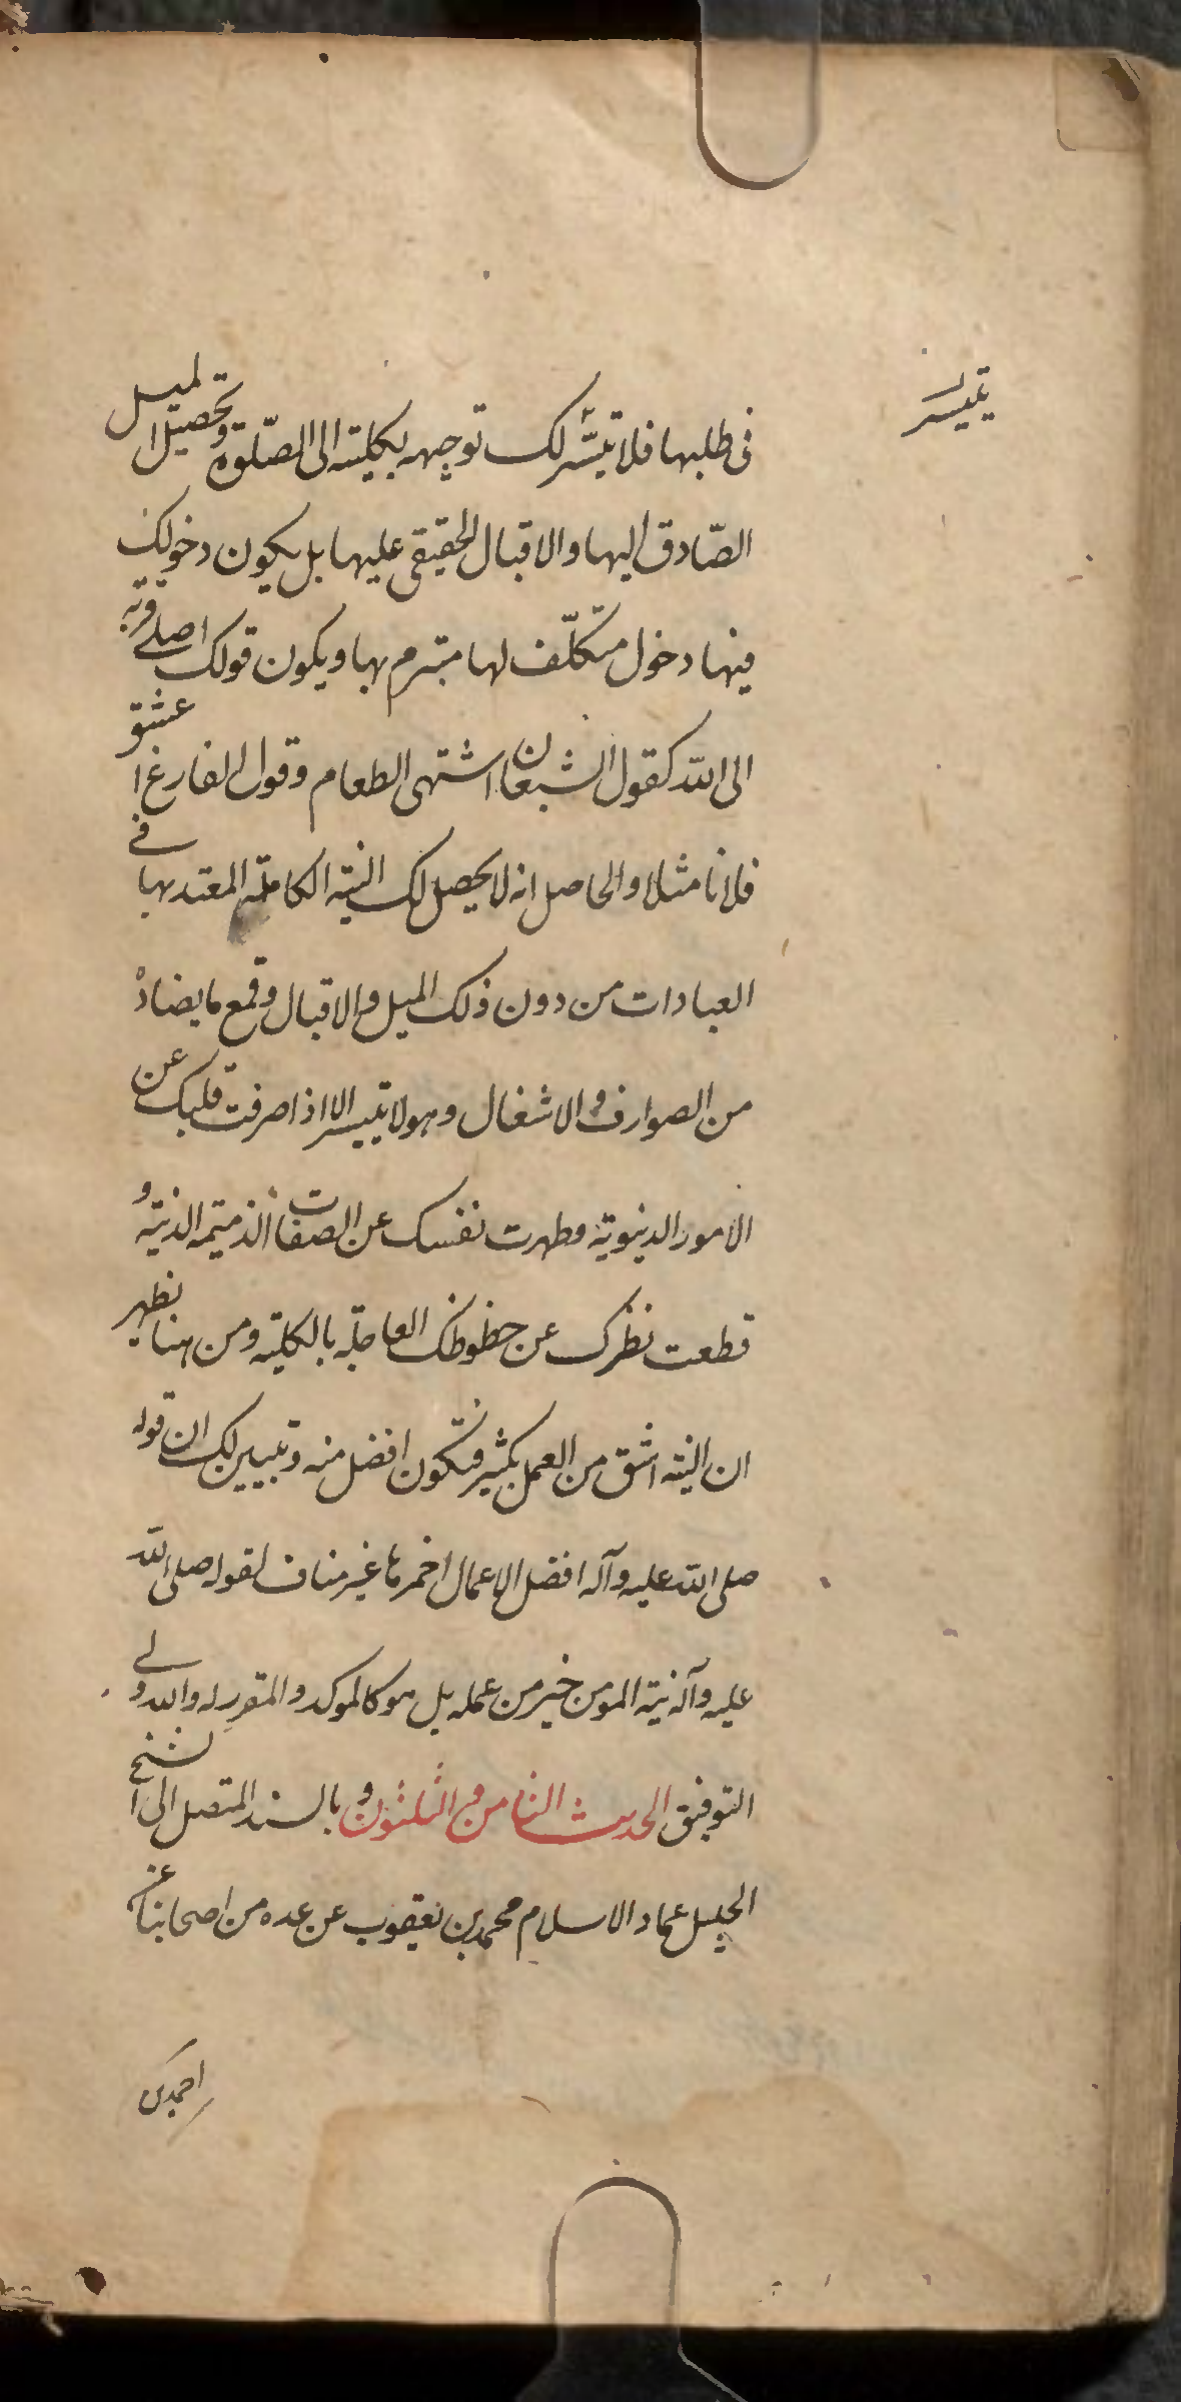 يتيسر
فى طلبها فلا تيسّر لك توجهه بكليته الى الصّلوة وتحصيل الميل
الصّادق اليها والاقبال الحقيقى عليها بل يكون دخولك
فيها دخول متكلّف لها متبرم بها ويكون قولك اصلى قربة
الى الله كقول الشبعان اشتهى الطعام وقول الفارغ اعشق
فلانا مثلا والحاصل انه لا يحصل لك النية الكاملة المعتد بها فى
العبادات من دون ذلك الميل والاقبال وقمع ما يضاده
من الصوارف والاشغال وهو لا يتيسر الا اذا صرفت قلبك عن
الامور الدنيوية وطهرت نفسك عن الصفات الذميمة الدنية و
قطعت نظرك عن حظوظك العاجلة بالكلية ومن هنا يظهر
ان النية اشق من العمل بكثير فتكون افضل منه وتبيين لك ان قوله
صلى الله عليه وآله افضل الاعمال احمزها غير مناف لقوله صلى الله
عليه وآله نية المومن خير من عمله بل هو كالموكد والمقرر له والله ولى
التوفيق الحديث الثامن والثلثون وبالسند المتصل الى الشيخ
الجليل عماد الاسلام محمد بن يعقوب عن عده من اصحابنا عن
احمد بن